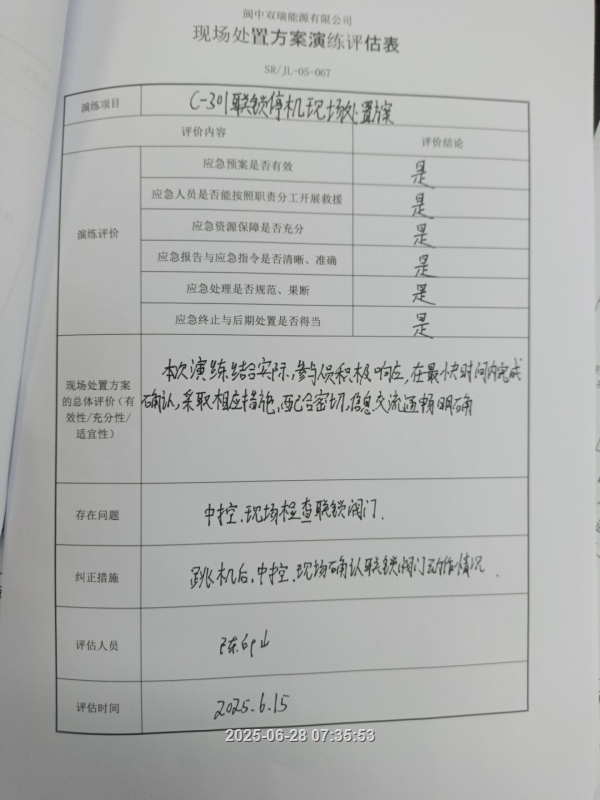 阆中双瑞能源有限公司
现场处置方案演练评估表
SR/JL-05-067
演练项目 C-301联锁停机现场处置方案
评价内容 评价结论
演练评价
应急预案是否有效 是
应急人员是否能按照职责分工开展救援 是
应急资源保障是否充分 是
应急报告与应急指令是否清晰、准确 是
应急处理是否规范、果断 是
应急终止与后期处置是否得当 是
现场处置方案
的总体评价（有
效性/充分性/
适宜性）
本次演练结合实际，参与人员积极响应，在最快时间内完成
确认，采取相应措施，配合密切，信息交流通畅明确
存在问题 中控、现场检查联锁阀门.
纠正措施 跳机后，中控、现场确认联锁阀门动作情况.
评估人员 陈
评估时间 2025.6.15
2025-06-28 07:35:53